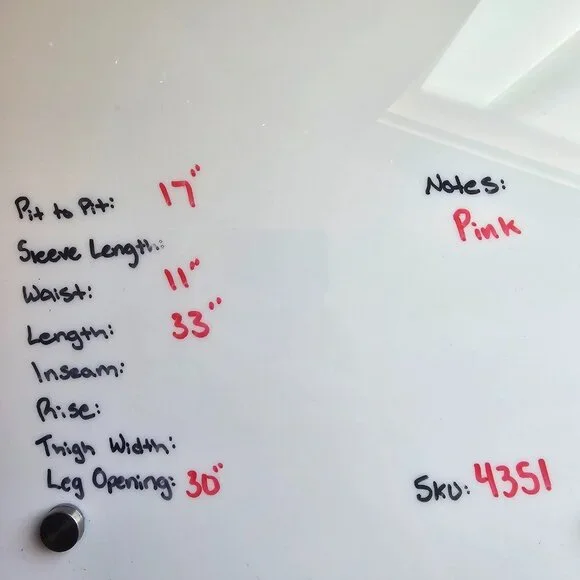 Pit to Pit: 17"
Sleeve Length:
Waist: 11"
Length: 33"
Inseam:
Rise:
Thigh Width:
Leg Opening: 30"
Notes:
Pink
Sku: 4351